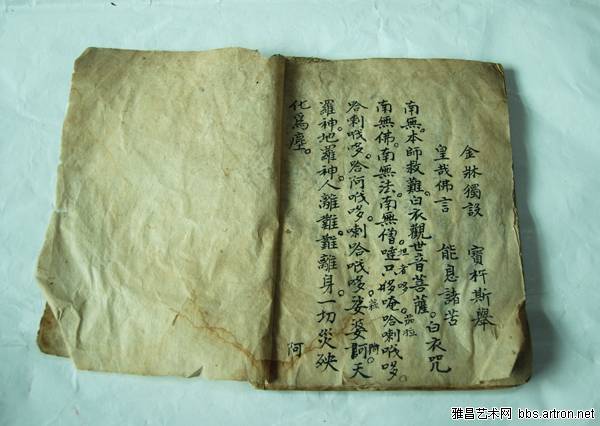 金牀獨設　寶杵斯舉
皇哉佛言　能息諸苦
白衣咒
南無。本師救難。白衣觀世音菩薩。
南無佛。南無法。南無僧。噠只哆。唵。哈喇哦哆。
哈喇哦哆。哈阿哦哆。喇哈哦哆。娑婆訶。天
羅神。地羅神。人離難。難離身。一切災殃
化爲塵。
阿
雅昌艺术网 bbs.artron.net